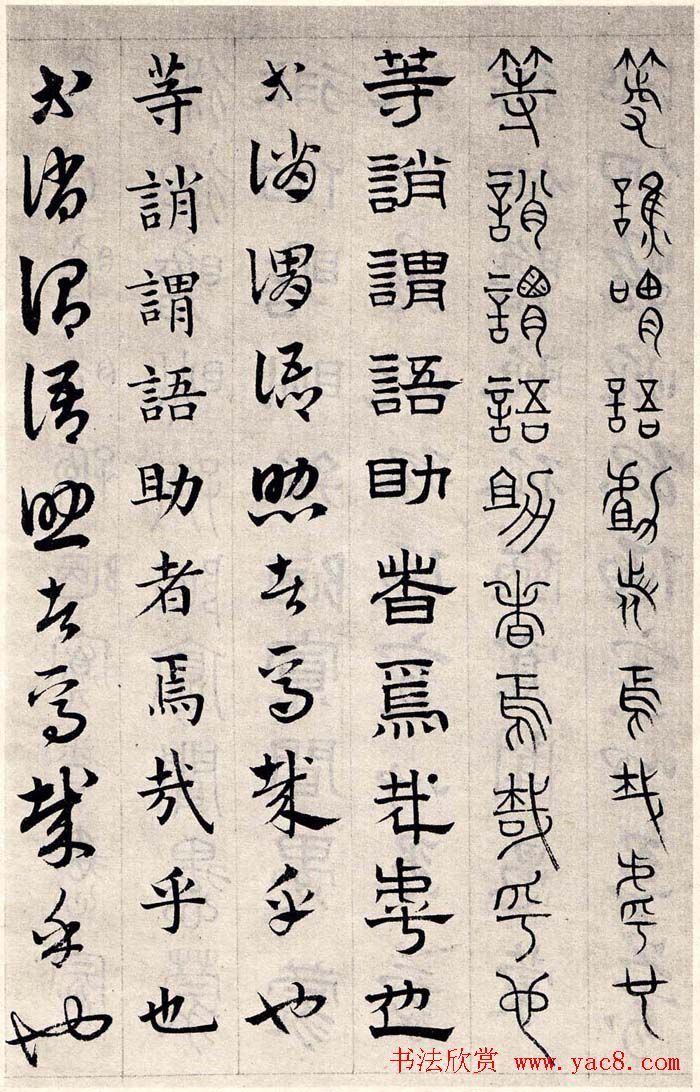 等譙謂語助者焉哉乎也
等誚謂語助者焉哉乎也
等誚謂語助者焉哉虖也
等誚謂語助者焉哉乎也
等誚謂語助者焉哉乎也
等誚謂語助者焉哉乎也
书法欣赏 www.yac8.com